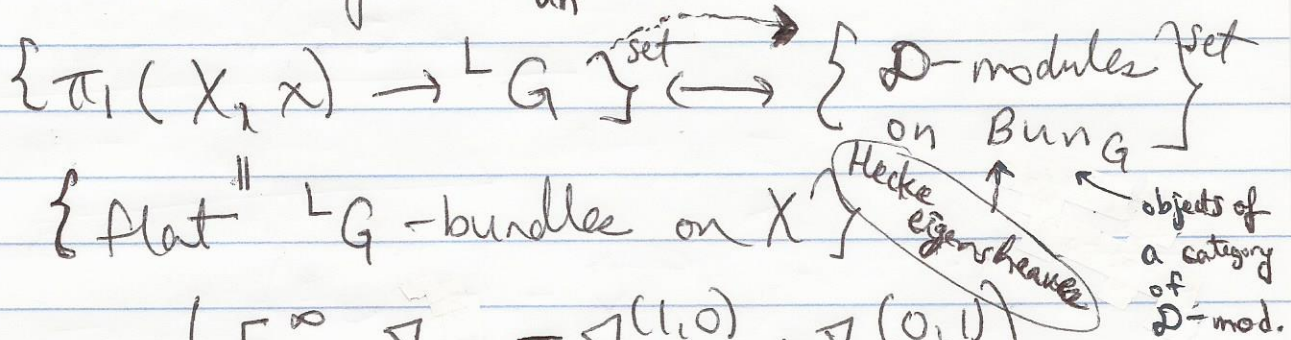 {π₁(X, x) → ᴸG}^set ↔ {𝒟-modules on Bun_G}^set
||
{flat ᴸG-bundles on X}
Hecke
eigensheaves
objects of
a category
of
𝒟-mod.
(1,0) (0,1)